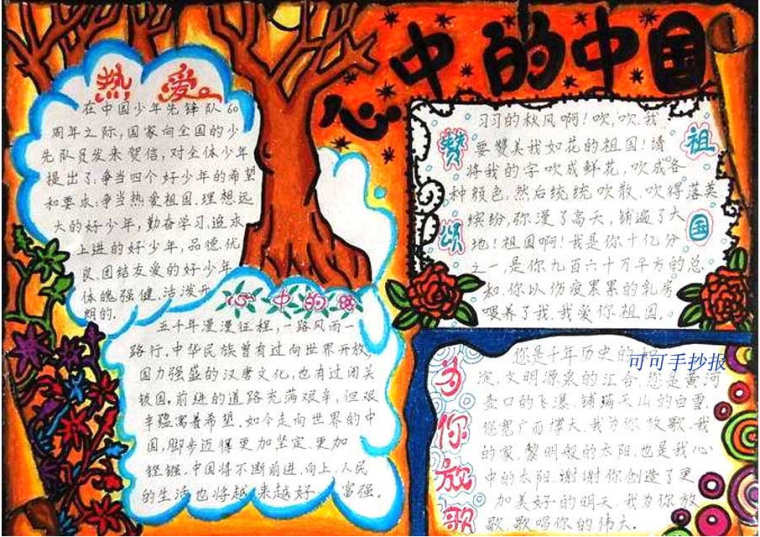 心中的中国
热爱
在中国少年先锋队60
周年之际,国家向全国的少
先队员发来贺信,对全体少年
提出了:争当四个好少年的希望
和要求:争当热爱祖国、理想远
大的好少年,勤奋学习、追求
上进的好少年,品德优
良、团结友爱的好少年
体魄强健、活泼开
朗的.
心中的
五千年漫漫征程,一路风雨一
路行,中华民族曾有过向世界开放,
国力强盛的汉唐文化,也有过闭关
锁国.前进的道路充满艰辛,但艰
辛蕴寓着希望.如今走向世界的中
国,脚步迈得更加坚定.更加
铿锵.中国将不断前进、向上,人民
的生活也将越来越好 富强。
赞颂
祖国
习习的秋风啊!吹,吹,我
要赞美我如花的祖国!请
将我的字吹成鲜花,吹成各
种颜色,然后统统吹散,吹得落英
缤纷,弥漫了高天,铺遍了大
地!祖国啊!我是你十亿分
之一,是你九百六十万平方的总
和你以伤痕累累的乳房
喂养了我,我爱你祖国。
为你放歌
你是千年历史的
可可手抄报
淀,文明源泉的汇合.您是黄河
壶口的飞瀑,铺满天山的白雪
您宽广而博大.我为你放歌.我
的家.黎明般的太阳.也是我心
中的太阳.谢谢你创造了更
加美好的明天.我为你放
歌.歌唱你的伟大.